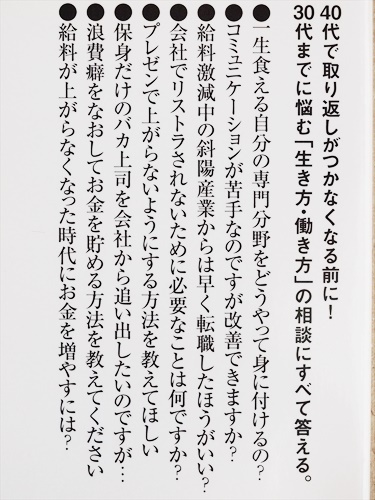 40代で取り返しがつかなくなる前に！
30代までに悩む「生き方・働き方」の相談にすべて答える。
●一生食える自分の専門分野をどうやって身に付けるの?
●コミュニケーションが苦手なのですが改善できますか?
●給料激減中の斜陽産業からは早く転職したほうがいい?
●会社でリストラされないために必要なことは何ですか?
●プレゼンで上がらないようにする方法を教えてほしい
●保身だけのバカ上司を会社から追い出したいのですが…
●浪費癖をなおしてお金を貯める方法を教えてください
●給料が上がらなくなった時代にお金を増やすには?